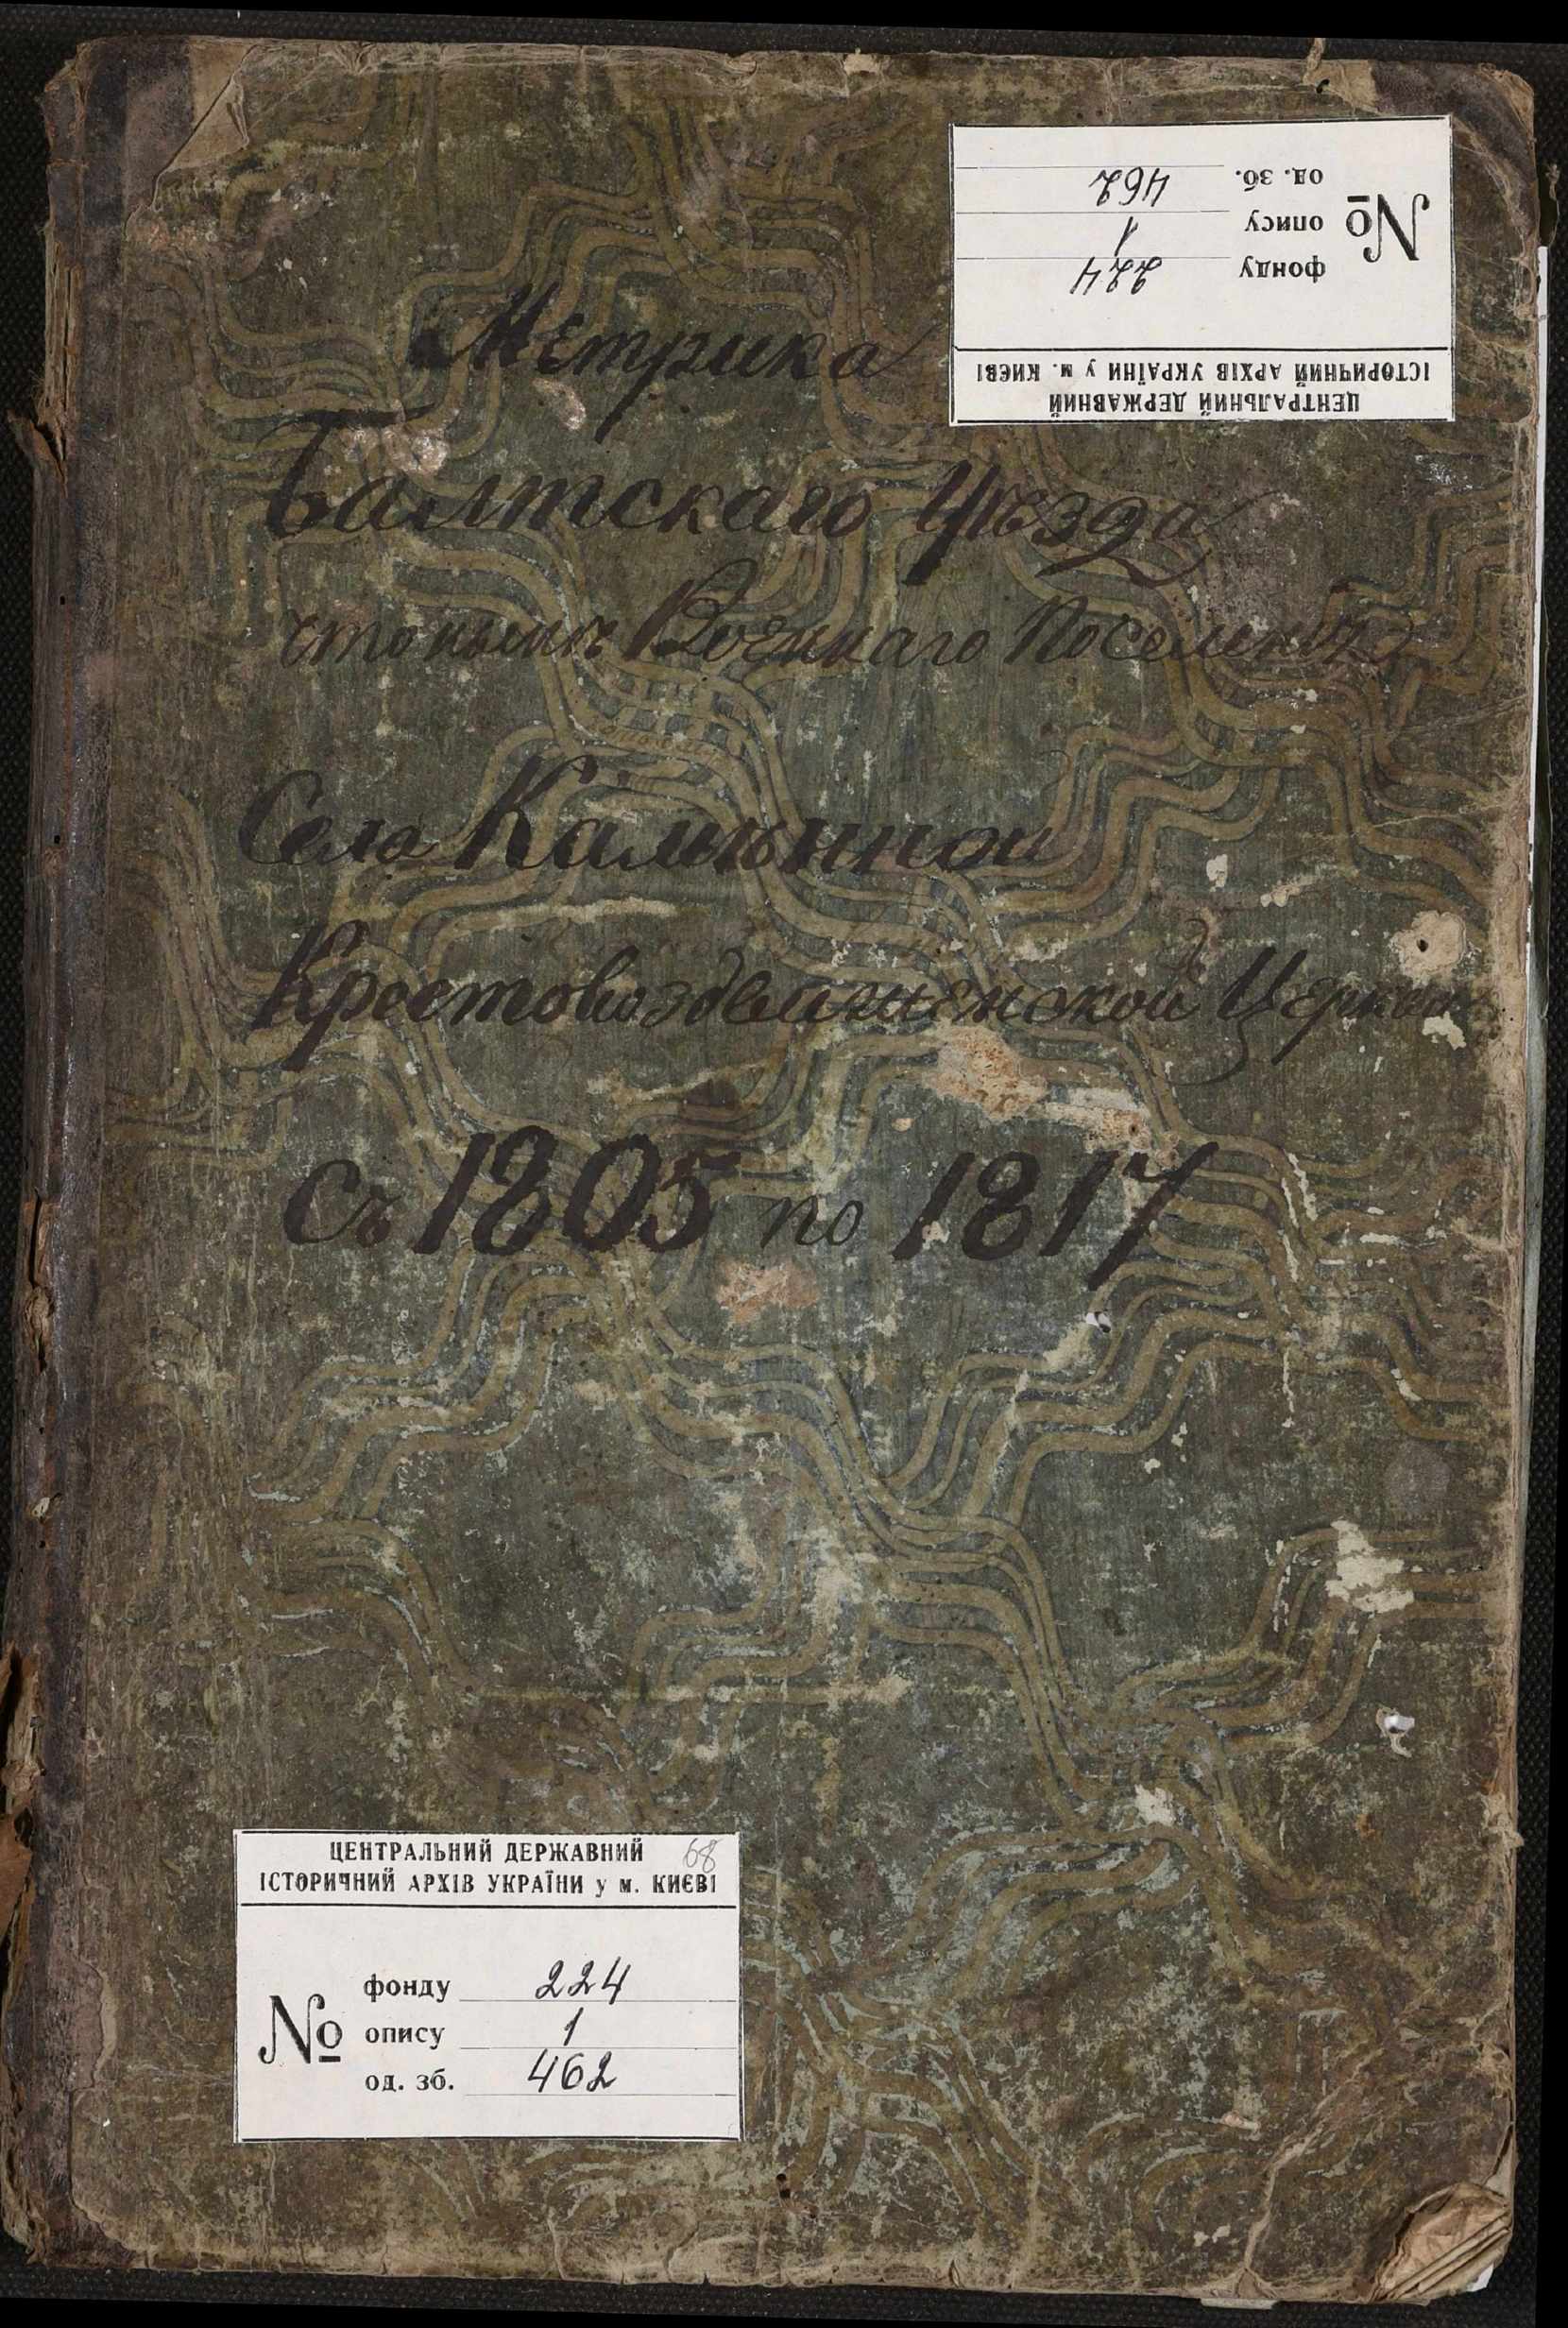 Метрика
Балтскаго Уѣзда
Военнаго Поселенія
Села Камѣнной
Крестовоздвиженской Церкви
Съ 1805 по 1817
ЦЕНТРАЛЬНИЙ ДЕРЖАВНИЙ
ІСТОРИЧНИЙ АРХІВ УКРАЇНИ у м. КИЄВІ
фонду 224
№ опису 1
од. зб. 462
ЦЕНТРАЛЬНИЙ ДЕРЖАВНИЙ 68
ІСТОРИЧНИЙ АРХІВ УКРАЇНИ у м. КИЄВІ
фонду 224
№ опису 1
од. зб. 462